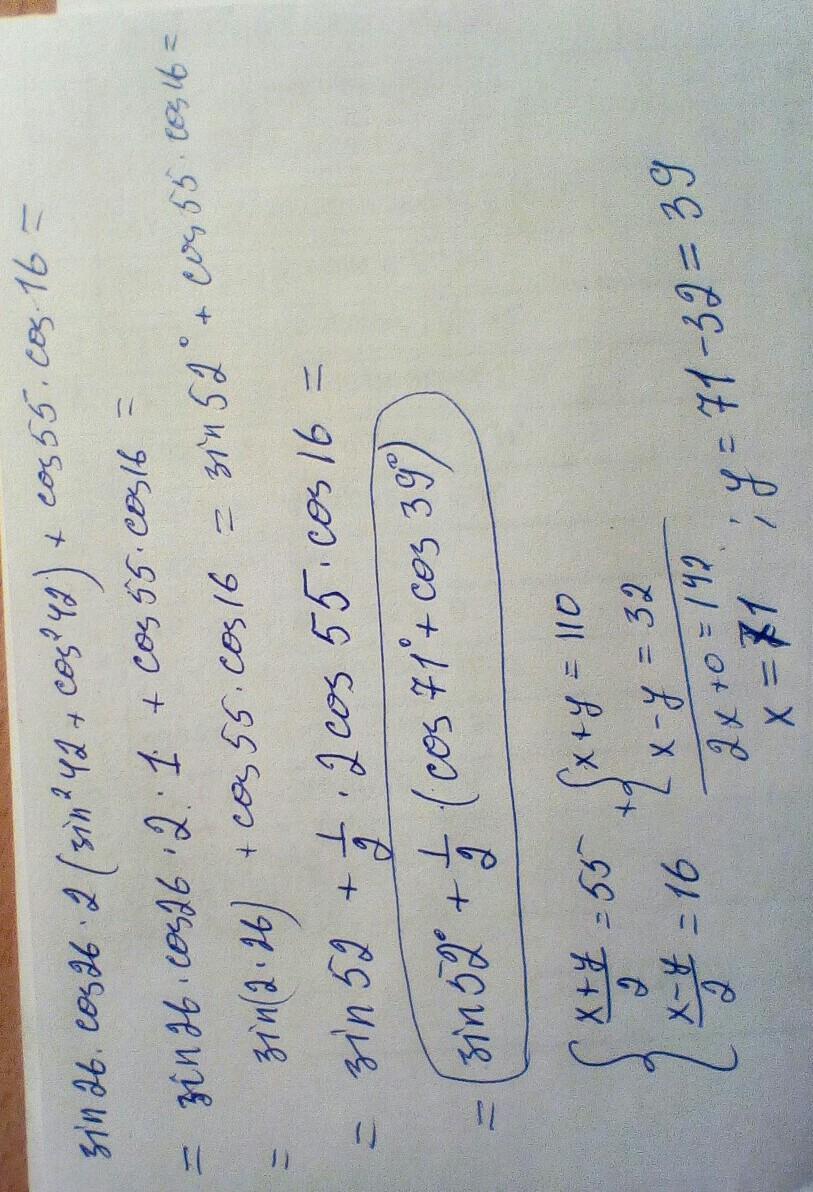 sin 26 · cos 26 · 2 (sin² 42 + cos² 42) + cos 55 · cos · 16 =
= sin 26 · cos 26 · 2 · 1 + cos 55 · cos 16 =
= sin(2 · 26) + cos 55 · cos 16 = sin 52° + cos 55 · cos 16 =
= sin 52 + 1/2 · 2 cos 55 · cos 16 =
= sin 52° + 1/2 · (cos 71° + cos 39°)
{ (x+y)/2 = 55 + { x+y = 110
(x-y)/2 = 16 x-y = 32
2x + 0 = 142
x = 71 ; y = 71 - 32 = 39